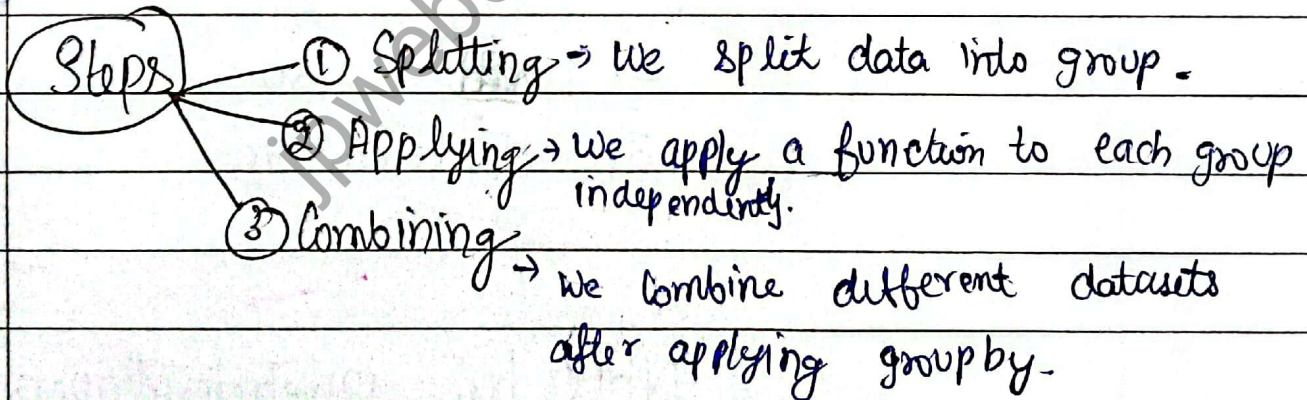 Steps
① Splitting → We split data into group.
② Applying → We apply a function to each group
independently.
③ Combining
→ We Combine different datasets
after applying groupby.
jpweb